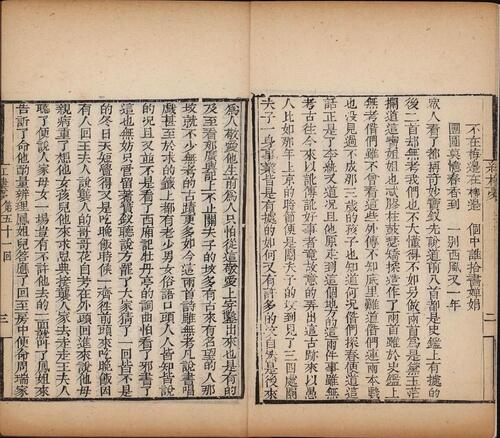 不在梅邊在柳邊　個中誰拾畫嬋娟
團圓莫憶春香到　一別西風又一年
衆人看了都稱奇妙寶釵先說道前八首都是史鑑上有據的
後二首却無考我們也不大懂得不如另做兩首爲是黛玉忙
攔道這寶姐姐也忒膠柱鼓瑟矯揉造作了兩首雖於史鑑上
無考偺們雖不曾看這些外傳不知底裡難道偺們連兩本戲
也沒見過不成那三歲的孩子也知道何况偺們探春便道這
話正是了李紈又道况且他原走到這個地方的這兩件事雖無
考古往今來以訛傳訛好事者竟故意的弄出這古跡來以愚
人比如那年上京的時節便是關夫子的墳到見了三四處關
夫子一身事業皆是有據的如何又有許多的墳自然是後來
二
爲人敬愛他生前爲人只怕從這敬愛上穿鑿出來也是有的
及至看那廣輿記上不止關夫子的墳多有古來有名望的人那
墳就不少無考的古蹟更多如今這兩首詩雖無考凡說書唱
戲甚至於求的籤上都有老少男女俗語口頭人人皆知皆說
的况且又並不是看了西廂記牡丹亭的詞曲怕看了邪書了
這也無妨只管留着寶釵聽說方罷了大家猜了一回皆不是
的冬日天短覺得又是吃晚飯時候一齊往前頭來吃晚飯因
有人回王夫人說襲人的哥哥花自芳在外頭回進來說他母
親病重了想他女孩兒他來求恩典接襲人家去走走王夫人
聽了便說人家母女一場豈有不許他去的一面就叫了鳳姐來
告訴了命他酌量辦理鳳姐兒答應了回至房中便命周瑞家
紅樓夢　第五十一回　三